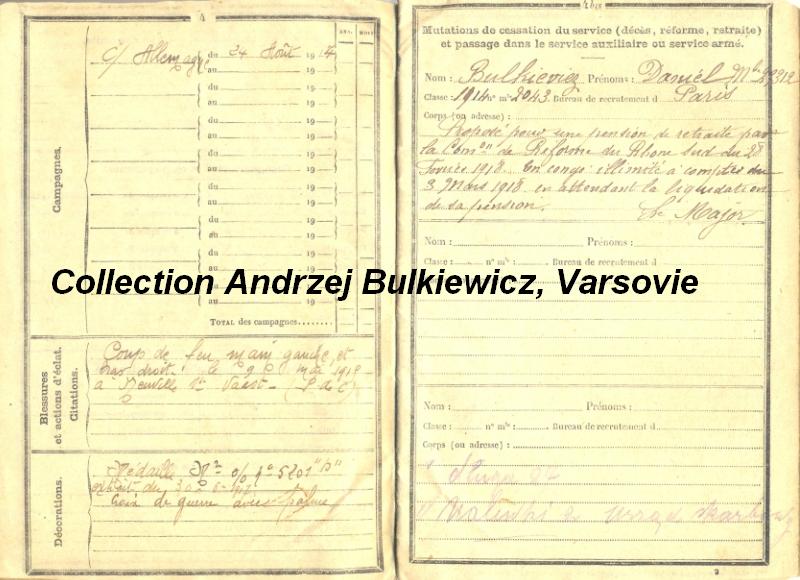 4
ANS. MOIS
Campagnes.
C/ Allemagne du 24 Août 1914
au 19
du 19
au 19
du 19
au 19
du 19
au 19
du 19
au 19
du 19
au 19
du 19
au 19
du 19
au 19
TOTAL des campagnes.......
Blessures
et actions d'éclat.
Citations.
Coup de feu main gauche et
bras droit. le 9 mai
à Neuville St Vaast - (P de C)
Décorations.
Médaille
extrait du
Croix de guerre avec palme
4bis
Mutations de cessation du service (décès, réforme, retraite)
et passage dans le service auxiliaire ou service armé.
Nom : Bulkieviez Prénoms : Daniel
Classe : 1914 n° mle 2043 Bureau de recrutement d Paris
Corps (ou adresse) :
Proposé pour une pension de retraite par
la Comon de Réforme du Rhône Sud du 28
Février 1918. En congé illimité à compter du
3 Mars 1918 en attendant la liquidation
de sa pension. Le Major
Nom : Prénoms :
Classe : n° mle : Bureau de recrutement d
Collection Andrzej Bulkiewicz, Varsovie
Nom : Prénoms :
Classe : n° mle : Bureau de recrutement d
Corps (ou adresse) :